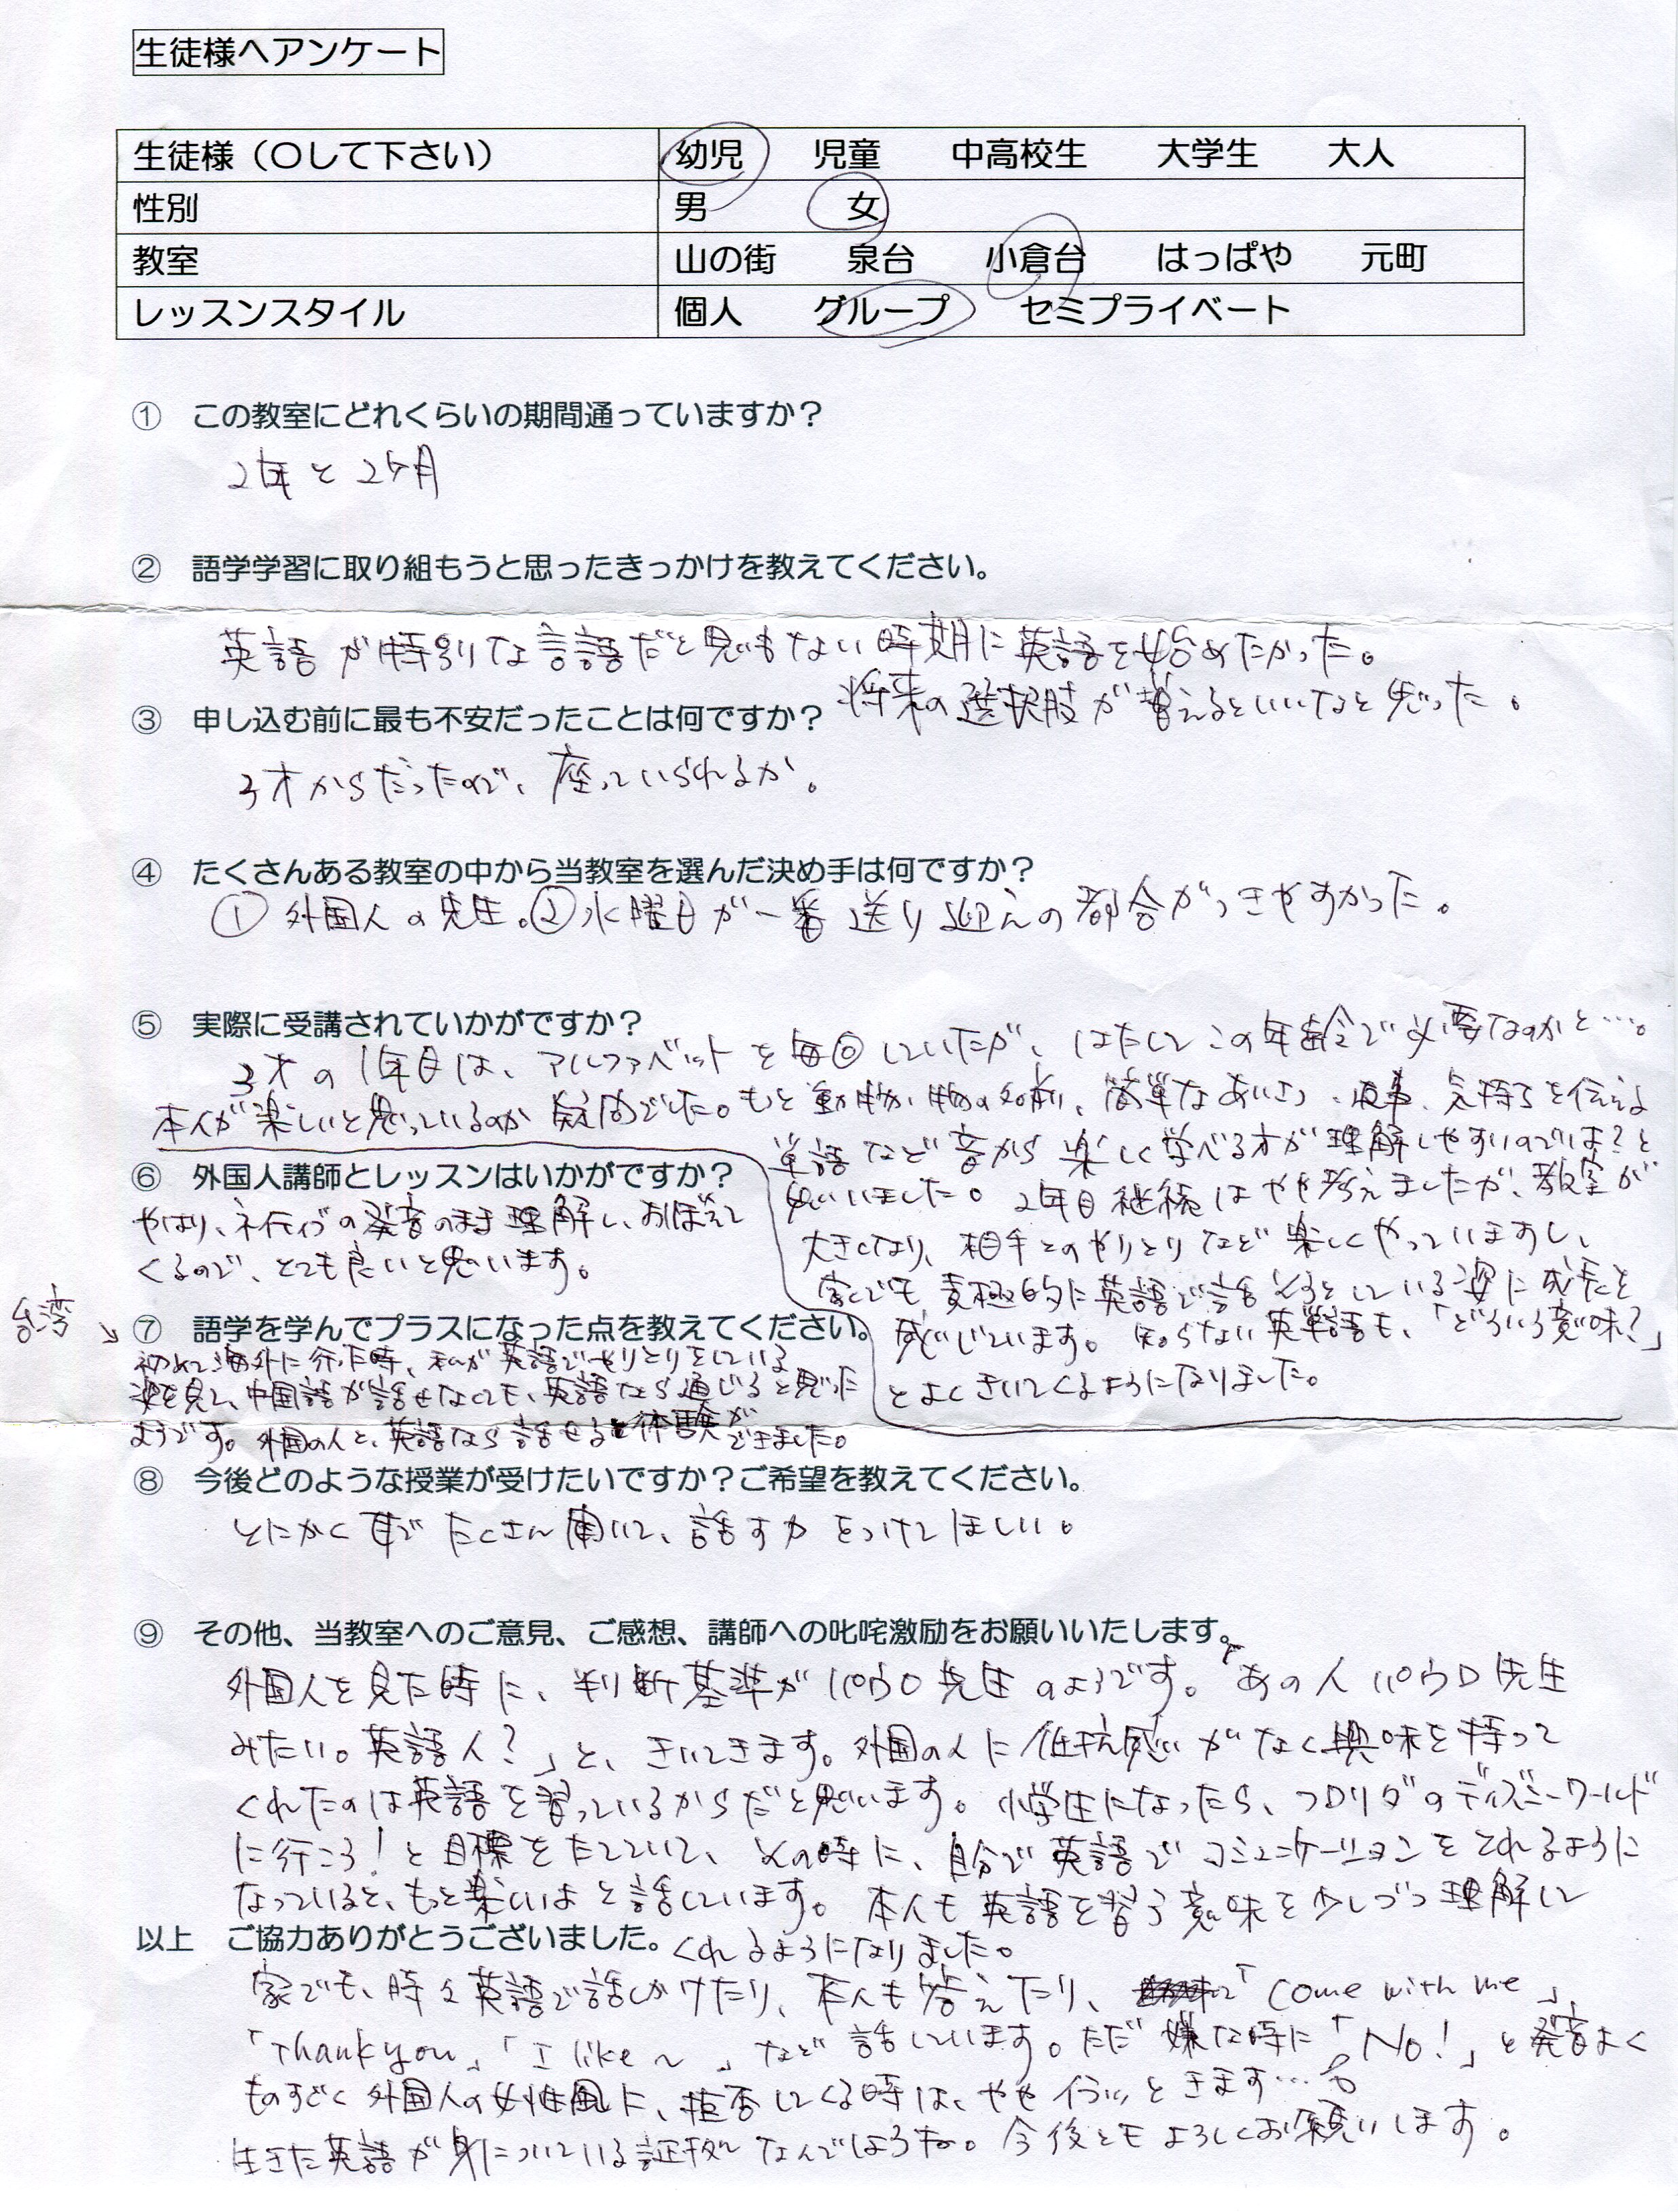 生徒様へアンケート
生徒様（○して下さい） 幼児 児童 中高校生 大学生 大人
性別 男 女
教室 山の街 泉台 小倉台 はっぱや 元町
レッスンスタイル 個人 グループ セミプライベート
① この教室にどれくらいの期間通っていますか？
2年と2ヶ月
② 語学学習に取り組もうと思ったきっかけを教えてください。
英語が特別な言語だと思いもない時期に英語を始めたかった。
将来の選択肢が増えるといいなと思った。
③ 申し込む前に最も不安だったことは何ですか？
3才からだったので、座っていられるか。
④ たくさんある教室の中から当教室を選んだ決め手は何ですか？
①外国人の先生。②水曜日が一番送り迎えの都合がつきやすかった。
⑤ 実際に受講されていかがですか？
3才の1年目は、アルファベットを毎回していたが、はたしてこの年齢で必要なのかと…。
本人が楽しいと思っているのか疑問でした。もと動物、物の名前、簡単なあいさつ、返事、気持ちを伝える
単語など音から楽しく学べる方が理解しやすいのでは？と
思いました。2年目継続はやや考えましたが、教室が
大きくなり、相手とのやりとりなど楽しくやっていますし、
家でも積極的に英語で話そうとしている姿に成長を
感じています。知らない英単語も、「どういう意味？」
とよくきいてくるようになりました。
⑥ 外国人講師とレッスンはいかがですか？
やはり、ネイティブの発音のまま理解し、おぼえて
くるので、とても良いと思います。
⑦ 語学を学んでプラスになった点を教えてください。
台湾
初めて海外に行った時、私が英語でやりとりをしている
姿を見て、中国語が話せなくても、英語なら通じると思った
ようです。外国の人と、英語なら話せると体験ができました。
⑧ 今後どのような授業が受けたいですか？ご希望を教えてください。
とにかく耳でたくさん聞いて、話す力をつけてほしい。
⑨ その他、当教室へのご意見、ご感想、講師への叱咤激励をお願いいたします。
外国人を見た時に、判断基準がパウロ先生のようです。「あの人パウロ先生
みたい。英語人？」と、きいてきます。外国の人に低抗感がなく興味を持って
くれたのは英語を習っているからだと思います。小学生になったら、フロリダのディズニーワールド
に行こう！と目標をたてていて、その時に、自分で英語でコミュニケーションをとれるように
なっていると、もっと楽しいよと話しています。本人も英語を習う意味を少しづつ理解して
くれるようになりました。
以上 ご協力ありがとうございました。
家でも、時々英語で話しかけたり、本人も答えたり、「Come with me」、
「Thank you」「I like～」など話しています。ただ嫌な時に「No！」と発音よく
ものすごく外国人の女性風に、拒否してくる時は、ややイラッときます…
生きた英語が身についている証拠なんでしょうね。今後ともよろしくお願いします。